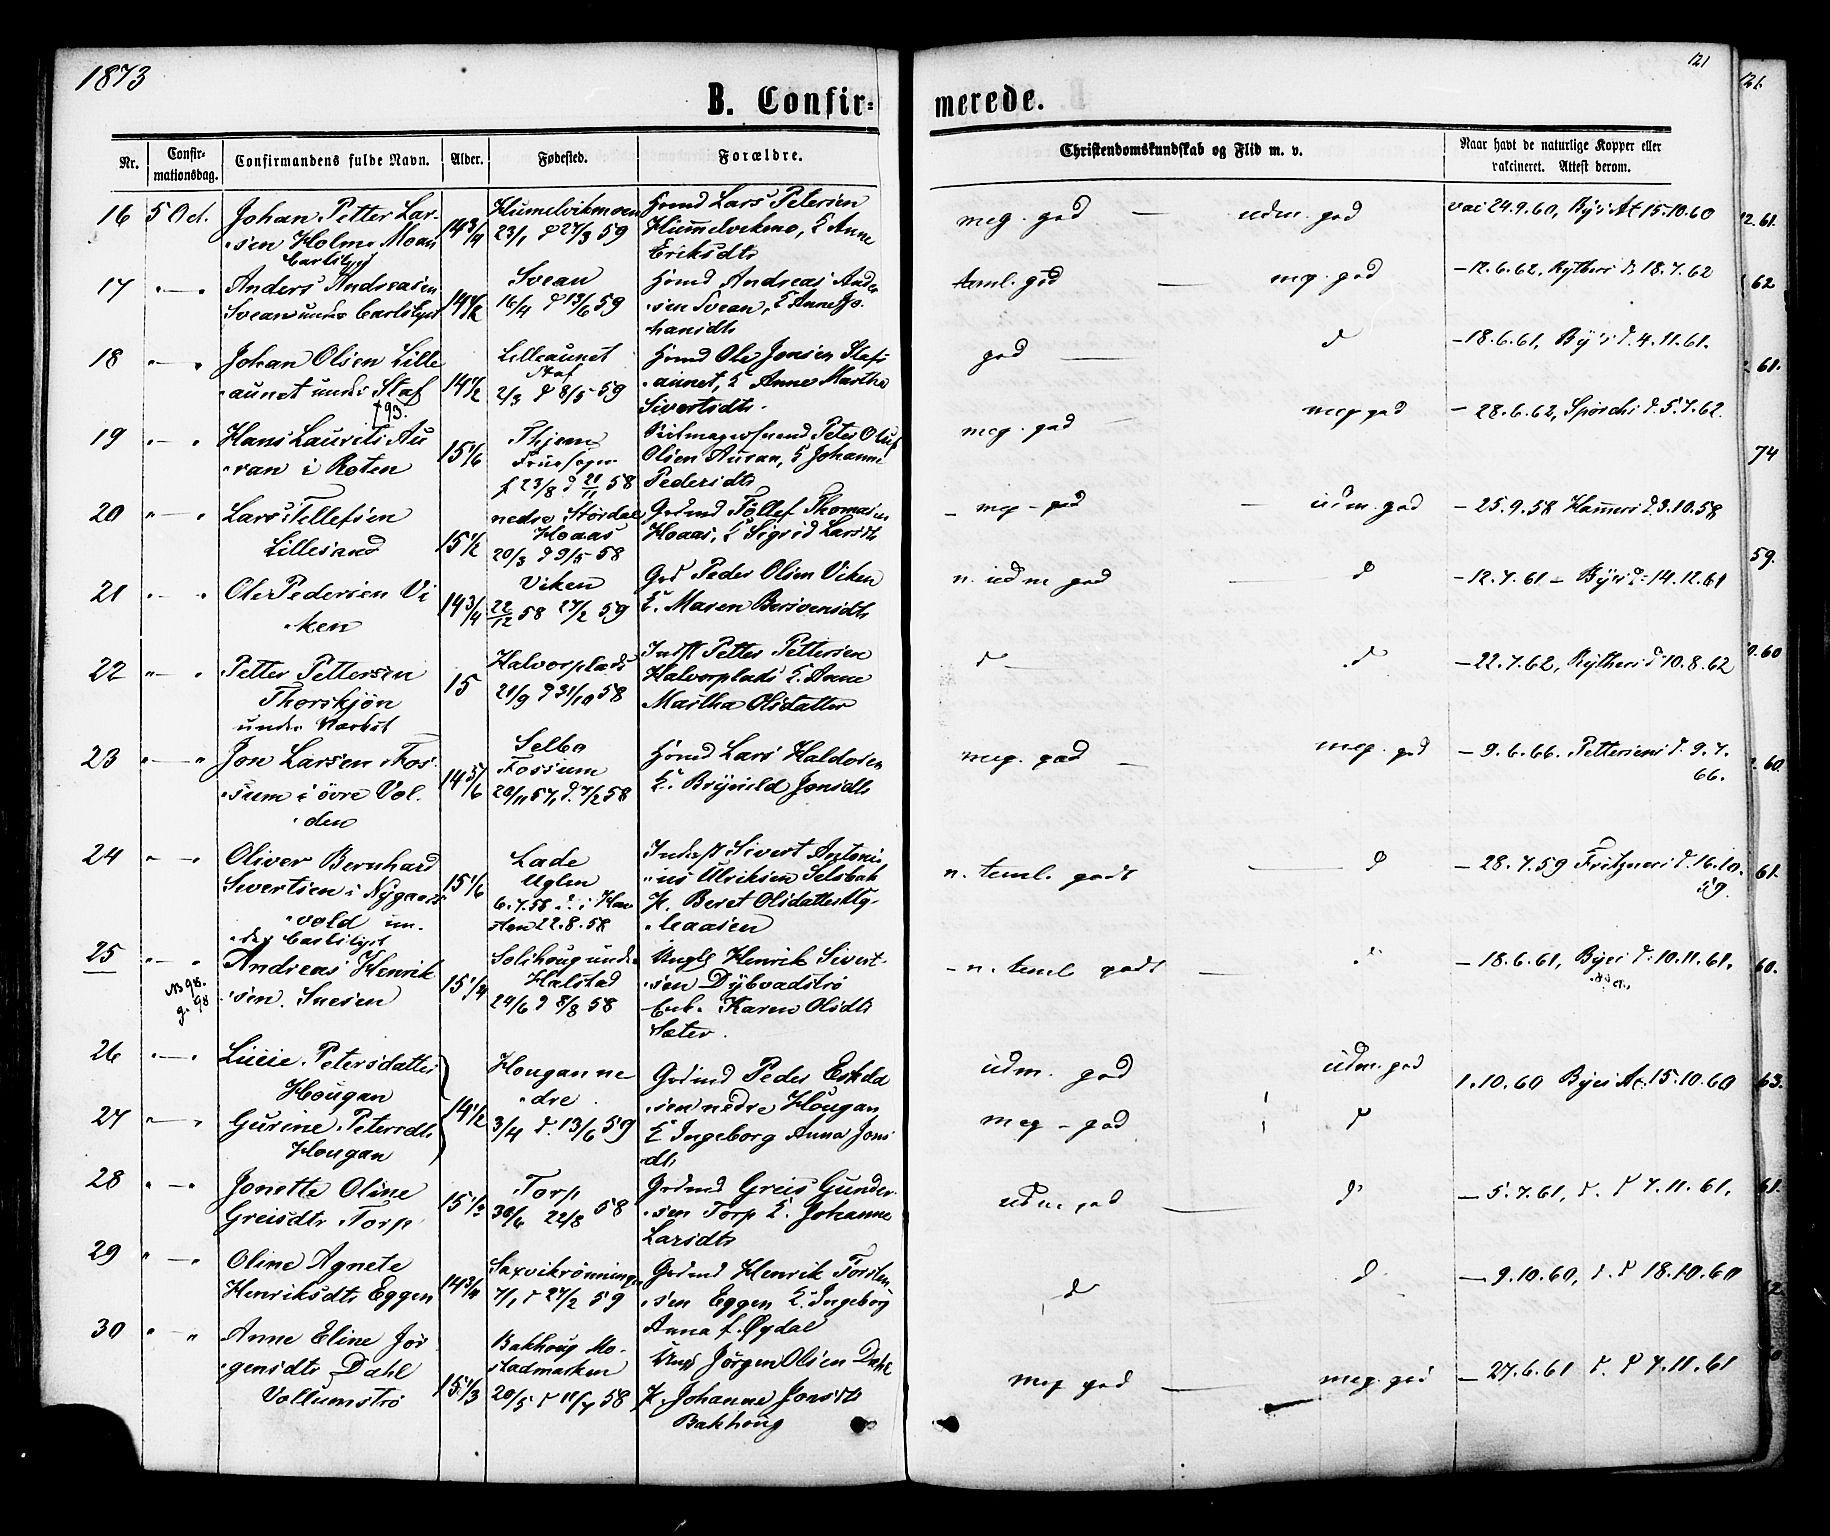 1873
121
121.
B. Confir-
merede.
Nr.
Confir-
mationsdag.
Confirmandens fulde Navn.
Alder.
Fødested.
Forældre.
Christendomskundskab og Flid m. v.
Naar havt de naturlige Kopper eller
vakcineret. Attest derom.
16 5 Oct. Johan Petter Lar-
sen Holm Moan
Carlslyst
14 3/4
Humelvikmoen
23/1 d 27/3 59
Grmd Lars Petersen
Hummelvikmo, E Anne
Eriksdtr
meg. god — udm. god
vac 24.9.60, Byes At 15.10.60
17 " — " Anders Andreasen
Svean under Carlslyst
14 1/2
Svean
16/4 d 13/6 59
Grmd Andreas Ander
sen Svean, E Anne Jo-
hansdtr
teml. god — meg. god
— 12.6.62, Rytters d. 18.7.62
18 " — " Johan Olsen Lille
aunet under Staf
14 1/2
Lilleaunet
Staf
2/3 d 8/5 59
Grmd Ole Jonsen Staf
aunet, E Anne Martha
Sivertsdtr.
god — d
— 18.6.61, Byes d. 4.11.61.
† 93.
19 " — " Hans Laurits Au
ran i Roten
15 1/6
Thjem
Fruesogn
f 23/8 d 21/11 58
Peter Oluf
Olsen Auran, E Johanne
Pedersdtr
meg. god — meg god
— 28.6.62, d. 5.7.62.
20 " — " Lars Tellefsen
Lillesand
15 1/2
nedre Størdal
Hoaas
20/3 d 9/5 58
Grdmd Tollef Thomasen
Hoaas, E Sigrid Larsdtr
— meg. god — udm. god
— 25.9.58 Hammers d. 3.10.58
21 " — " Ole Pedersen Vi
ken
14 3/4
Viken
22/12 58 27/2 59
Grd Peder Olsen Viken
E. Maren Bersvensdtr
n. udm god — d
— 12.7.61 — Byes d. 14.12.61
22 " — " Petter Pettersen
Thorskjøn
under
15
Halvorplads
21/9 d 31/10 58
Indst Petter Pettersen
Halvorplads E. Anne
Martha Olsdatter
d — d
— 22.7.62, Rytters d 10.8.62
23 " — " Jon Larsen Fos-
sum i øvre Vol-
den
14 5/6
Selbo
Fossum
20/11 57, d. 7/2 58
Grmd Lars Haldorsen
E. Brynild Jonsdtr
meg. god — meg. god
— 9.6.66. Pettersens d. 9.7.
66.
24 " — " Oliver Bernhard
Sivertsen i Nygaards
vold un-
der Carlslyst
15 1/6
Lade
Uglen
6.7.58 d. i Hav
sten 22.8.58
Indst Sivert Antoni-
us Ulriksen Selsbak
K. Beret Olsdatter Ug-
laasen
n. teml. godt — d
— 28.7.59 Fritzners d. 16.10.
59.
25 " — " Andreas Henrik
sen. Snesen
15 1/4
Solihoug under
Halstad
24/6 d 8/8 58
Ungk Henrik Sivert-
sen Dybvadstrø
Enk. Karen Olsdtr
Sæter.
— n. teml godt — "
— 18.6.61, Byes d. 10.11.61.
26 " — " Lucie Petersdatter
Hougan
27 " — " Gurine Petersdtr
Hougan
14 1/2
Hougan ne
dre
3/4 d. 13/6 59
Grdmd Peder Eskild
sen nedre Hougan
E Ingeborg Anna Jons
dtr
udm. god udm. god
meg. god d
1.10.60 Byes At. 15.10.60
28 " — " Jonette Oline
Greisdtr Torp
15 1/3
Torp
30/6 22/8 58
Grdmd Greis Gunder
sen Torp E. Johanne
Larsdtr
udm god — d
— 5.7.61, d. d 7.11.61,
29 " — " Oline Agnete
Henriksdtr Eggen
14 3/4
Saxvikrønningen
7/1 d 27/2 59
Grdmd Henrik Torsten
sen Eggen E. Ingeborg
Anna f. Øydal
d — d
— 9.10.60, d. d 18.10.60
30 " — " Anne Eline Jør
gensdtr Dahl
Vollumstrø
15 1/3
Bakhoug Mo-
stadmarken
20/5 d 11/7 58
Ungk Jørgen Olsen Dahl
K. Johanne Jonsdtr
Bakhoug
meg god — meg. god
— 27.6.61 d. d 7.11.61